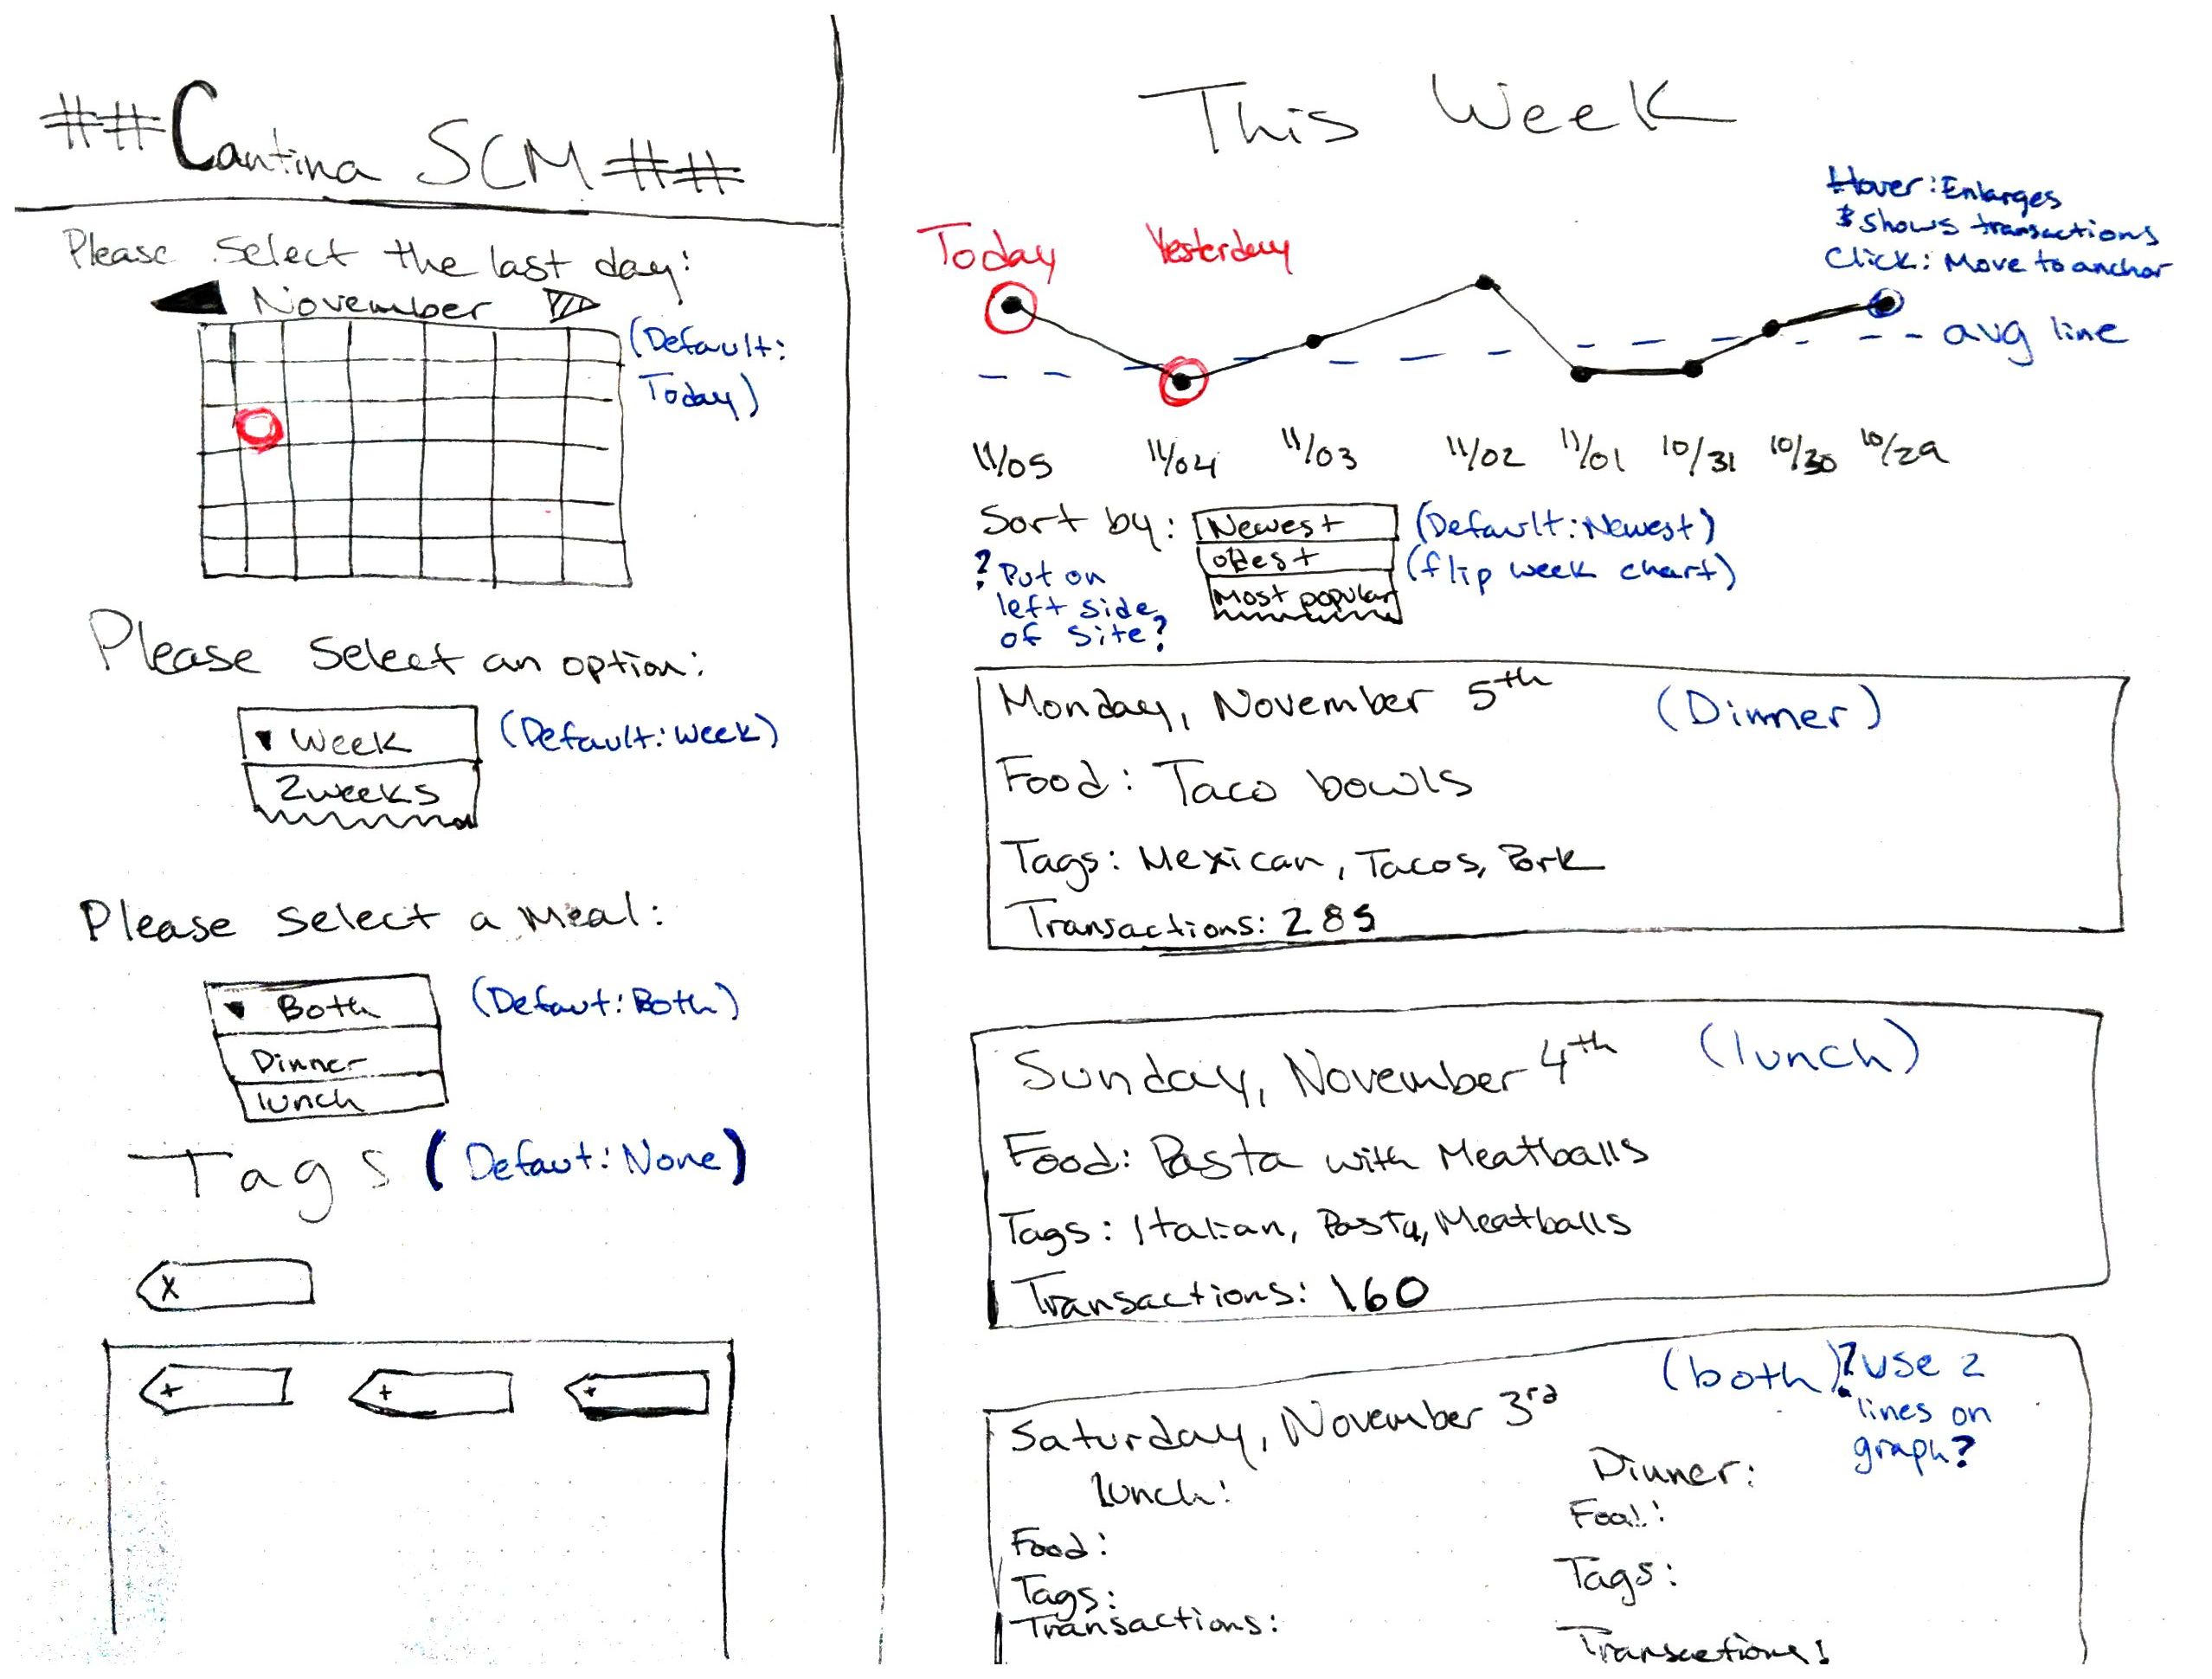 ##Cantina SCM##
Please Select the last day:
November
(Default:
Today)
Please Select an option:
Week
(Default: Week)
2weeks
Please Select a Meal:
Both
(Defaut: Both)
Dinner
lunch
Tags (Defaut: None)
X
+ + +
This Week
Hover: Enlarges
& shows transactions
Click: Move to anchor
Today Yesterday
avg line
11/05 11/04 11/03 11/02 11/01 10/31 10/30 10/29
Sort by: Newest (Default: Newest)
oldest (flip week chart)
Most popular
? Put on
left side
of site?
Monday, November 5th (Dinner)
Food: Taco bowls
Tags: Mexican, Tacos, Pork
Transactions: 285
Sunday, November 4th (lunch)
Food: Pasta with Meatballs
Tags: Italian, Pasta, Meatballs
Transactions: 160
(both) ? use 2
lines on
graph?
Saturday, November 3rd
lunch:
Food:
Tags:
Transactions:
Dinner:
Food:
Tags:
Transactions: